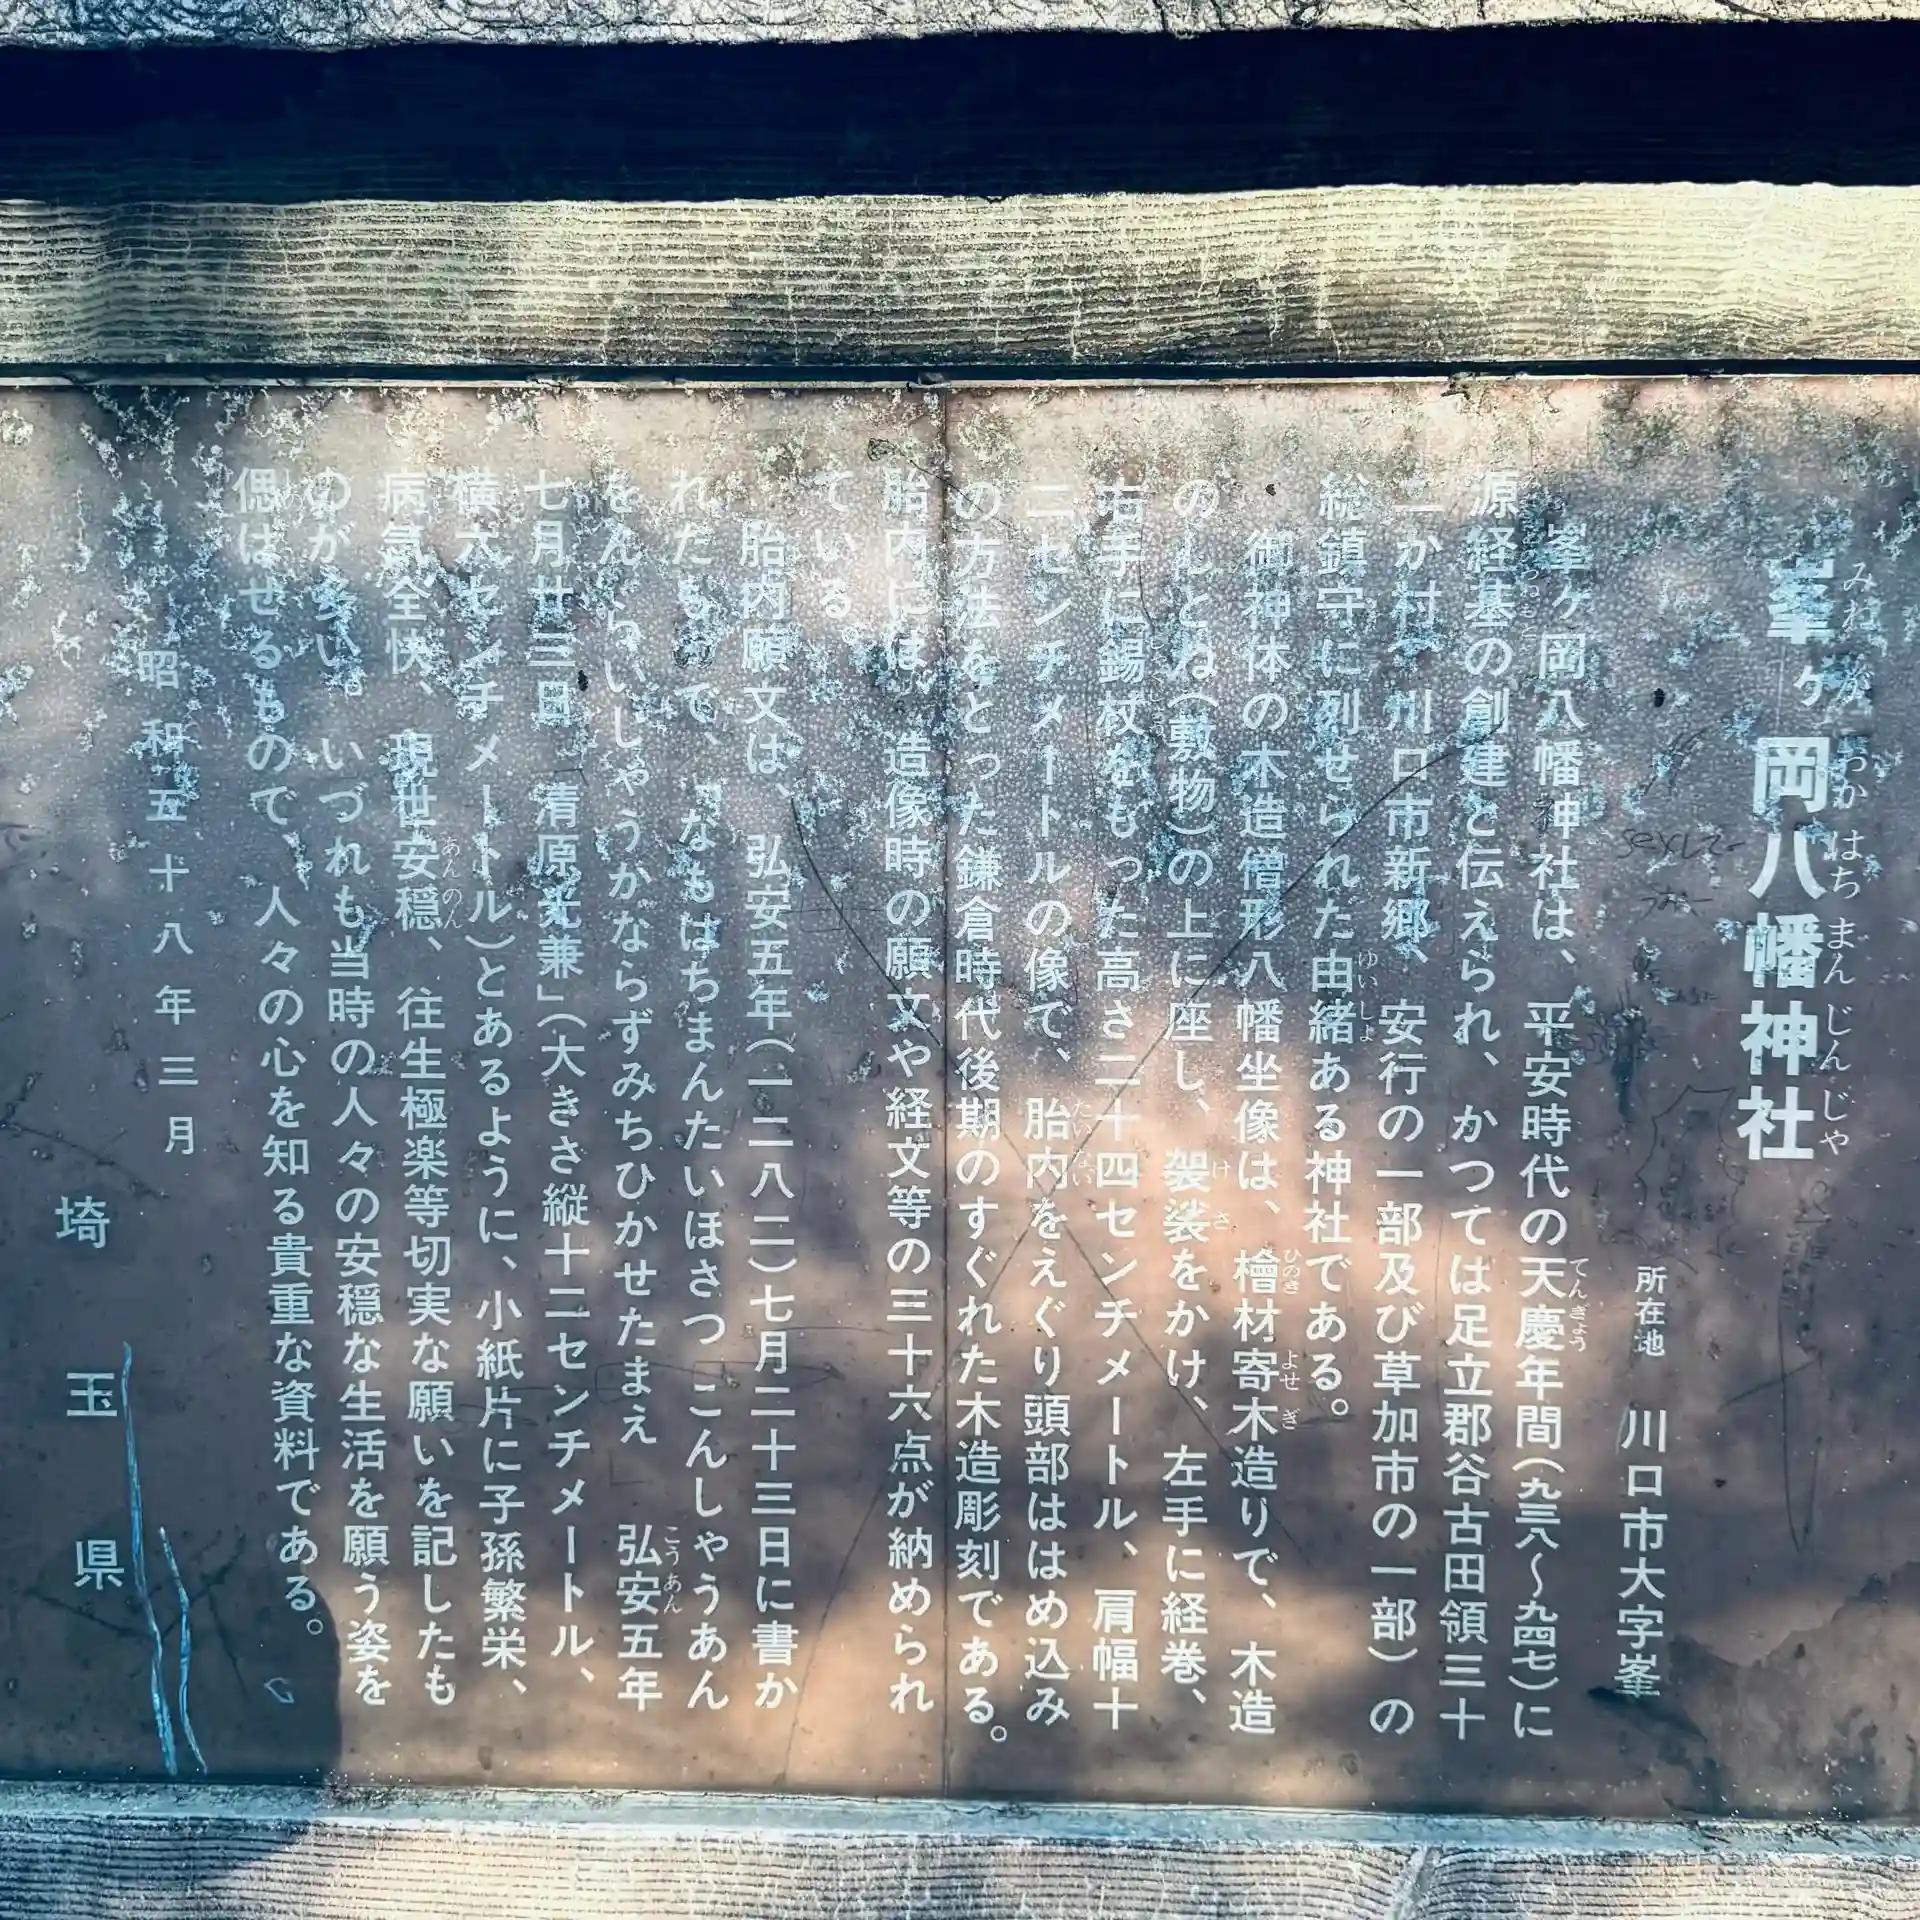 峯ヶ岡八幡神社
所在地 川口市大字峯
峯ヶ岡八幡神社は、平安時代の天慶年間(九三八〜九四七)に
源経基の創建と伝えられ、かつては足立郡谷古田領三十
二か村(川口市新郷、安行の一部及び草加市の一部)の
総鎮守に列せられた由緒ある神社である。
御神体の木造僧形八幡坐像は、檜材寄木造りで、木造
のしとね(敷物)の上に座し、袈裟をかけ、左手に経巻、
右手に錫杖をもった高さ二十四センチメートル、肩幅十
二センチメートルの像で、胎内をえぐり頭部ははめ込み
の方法をとった鎌倉時代後期のすぐれた木造彫刻である。
胎内には、造像時の願文や経文等の三十六点が納められ
ている。
胎内願文は、弘安五年(一二八二)七月二十三日に書か
れたもので、「なもはちまんたいほさつ こんしゃうあん
をんらいしゃうかならずみちひかせたまえ 弘安五年
七月廿三日 清原光兼」(大きさ縦十二センチメートル、
横六センチメートル)とあるように、小紙片に子孫繁栄、
病気全快、現世安穏、往生極楽等切実な願いを記したも
のが多い。いづれも当時の人々の安穏な生活を願う姿を
偲ばせるもので、人々の心を知る貴重な資料である。
昭和五十八年三月
埼玉県